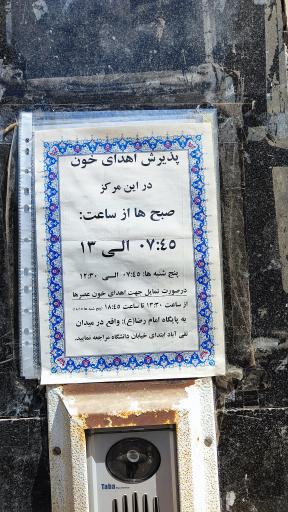 پذیرش اهدای خون
در این مرکز
صبح ها از ساعت:
۰۷:٤٥ الی ۱۳
پنج شنبه ها: ۰۷:٤٥ الی ۱۲:۳۰
درصورت تمایل جهت اهدای خون عصرها
از ساعت ۱۳:۳۰ تا ساعت ۱۸:٤٥
به پایگاه امام رضا(ع): واقع در میدان
تقی آباد ابتدای خیابان دانشگاه مراجعه نمایید.
Taba